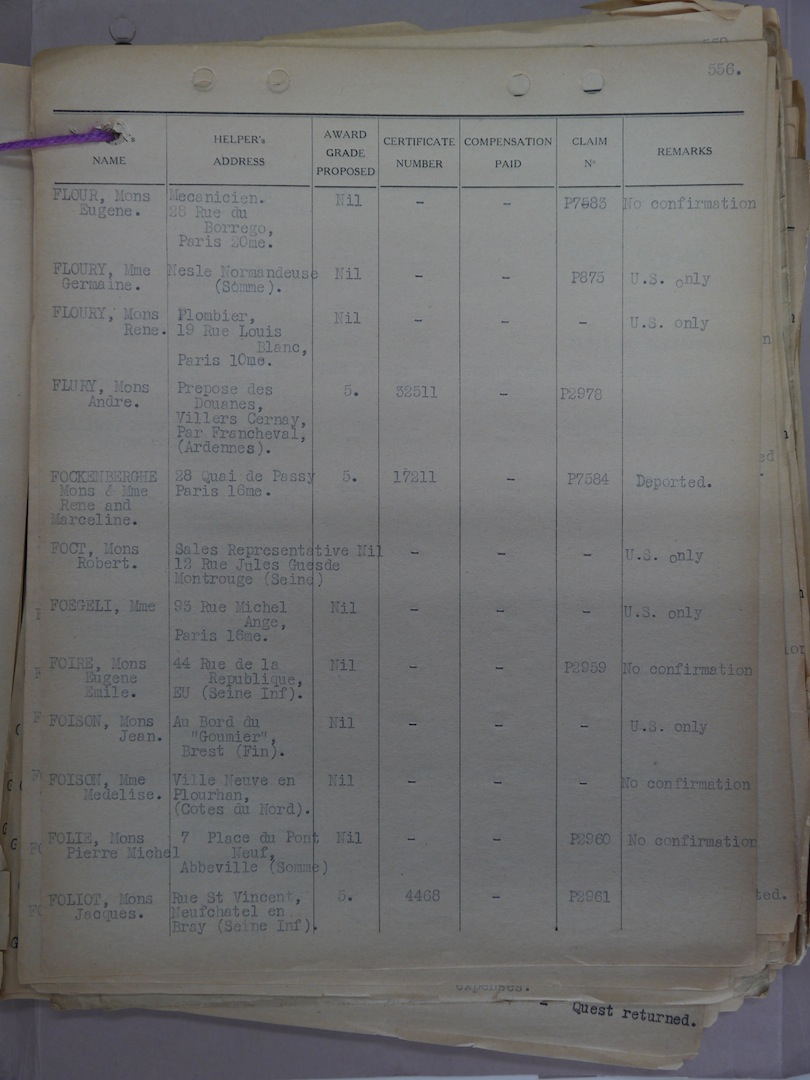 556.
NAME
HELPER's
ADDRESS
AWARD
GRADE
PROPOSED
CERTIFICATE
NUMBER
COMPENSATION
PAID
CLAIM
No
REMARKS
FLOUR, Mons Mecanicien. Nil - - P7583 No confirmation
Eugene. 28 Rue du
Borrego,
Paris 20me.
FLOURY, Mme Nesle Normandeuse Nil - - P875 U.S. only
Germaine. (Somme).
FLOURY, Mons Plombier, Nil - - - U.S. only
Rene. 19 Rue Louis
Blanc,
Paris 10me.
FLURY, Mons Prepose des 5. 32511 - P2978
Andre. Douanes,
Villers Cernay,
Par Francheval,
(Ardennes).
FOCKENBERGHE 28 Quai de Passy 5. 17211 - P7584 Deported.
Mons & Mme Paris 16me.
Rene and
Marceline.
FOCT, Mons Sales Representative Nil - - - U.S. only
Robert. 12 Rue Jules Guesde
Montrouge (Seine)
FOEGELI, Mme 93 Rue Michel Nil - - - U.S. only
Ange,
Paris 16me.
FOIRE, Mons 44 Rue de la Nil - - P2959 No confirmation
Eugene Republique,
Emile. EU (Seine Inf).
FOISON, Mons Au Bord du Nil - - - U.S. only
Jean. "Goumier",
Brest (Fin).
FOISON, Mme Ville Neuve en Nil - - - No confirmation
Medelise. Plourhan,
(Cotes du Nord).
FOLIE, Mons 7 Place du Pont Nil - - P2960 No confirmation
Pierre Michel Neuf,
Abbeville (Somme)
FOLIOT, Mons Rue St Vincent, 5. 4468 - P2961
Jacques. Neufchatel en
Bray (Seine Inf).
expenses.
- Quest returned.